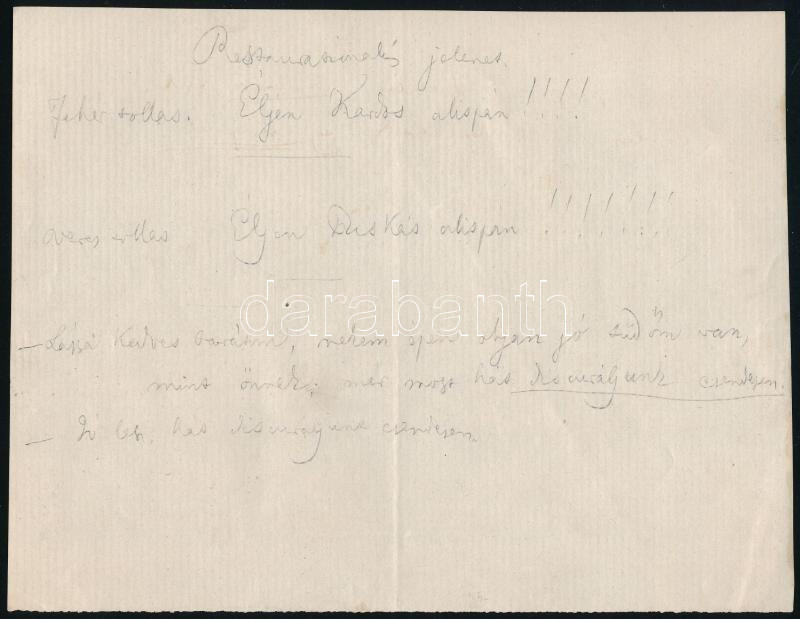 Restaurationalis jelenet.
Fehér tollas. Éljen Kardos alispán !!!!
veres tollas Éljen Duskás alispán !!!!!!!
darabanth
— Lássá kedves barátom, nekem épen olyan jó tüdőm van,
mint önnek; mer most hát discuráljunk csendesen.
— Jó lesz, hát discuráljunk csendesen.